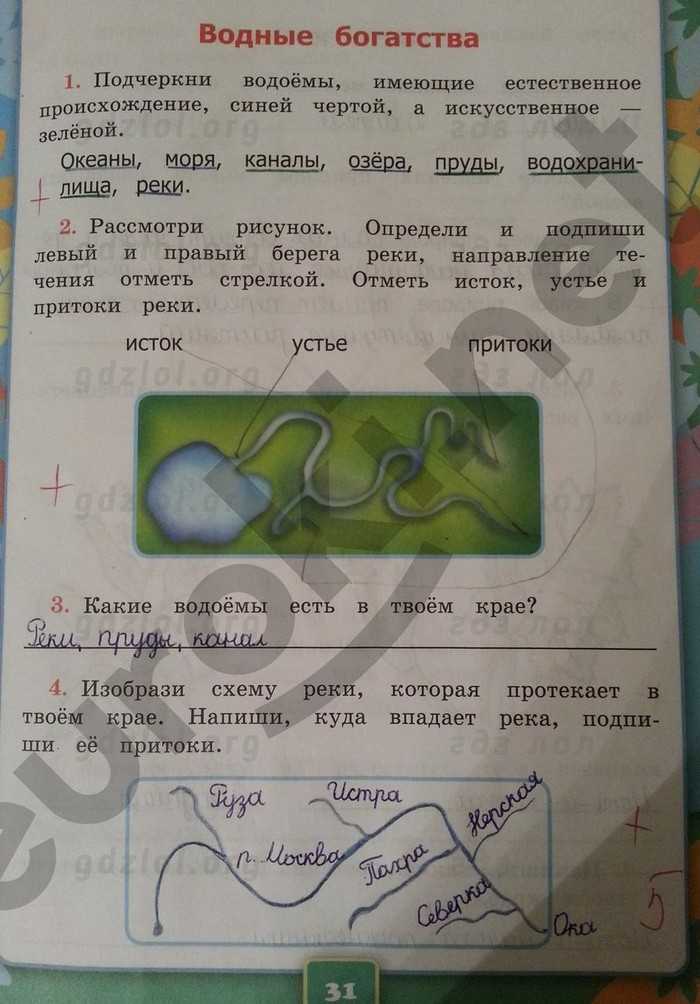 Водные богатства
1. Подчеркни водоёмы, имеющие естественное
происхождение, синей чертой, а искусственное —
зелёной.
Океаны, моря, каналы, озёра, пруды, водохрани-
лища, реки.
2. Рассмотри рисунок. Определи и подпиши
левый и правый берега реки, направление те-
чения отметь стрелкой. Отметь исток, устье и
притоки реки.
исток устье притоки
3. Какие водоёмы есть в твоём крае?
Реки, пруды, канал
4. Изобрази схему реки, которая протекает в
твоём крае. Напиши, куда впадает река, подпи-
ши её притоки.
Руза Истра Нерская
р. Москва Пахра
Северка Ока
5
31
eurokinet
gdzlol.org
gdzlol.org
gdzlol.org
gdzlol.org
gdzlol.org